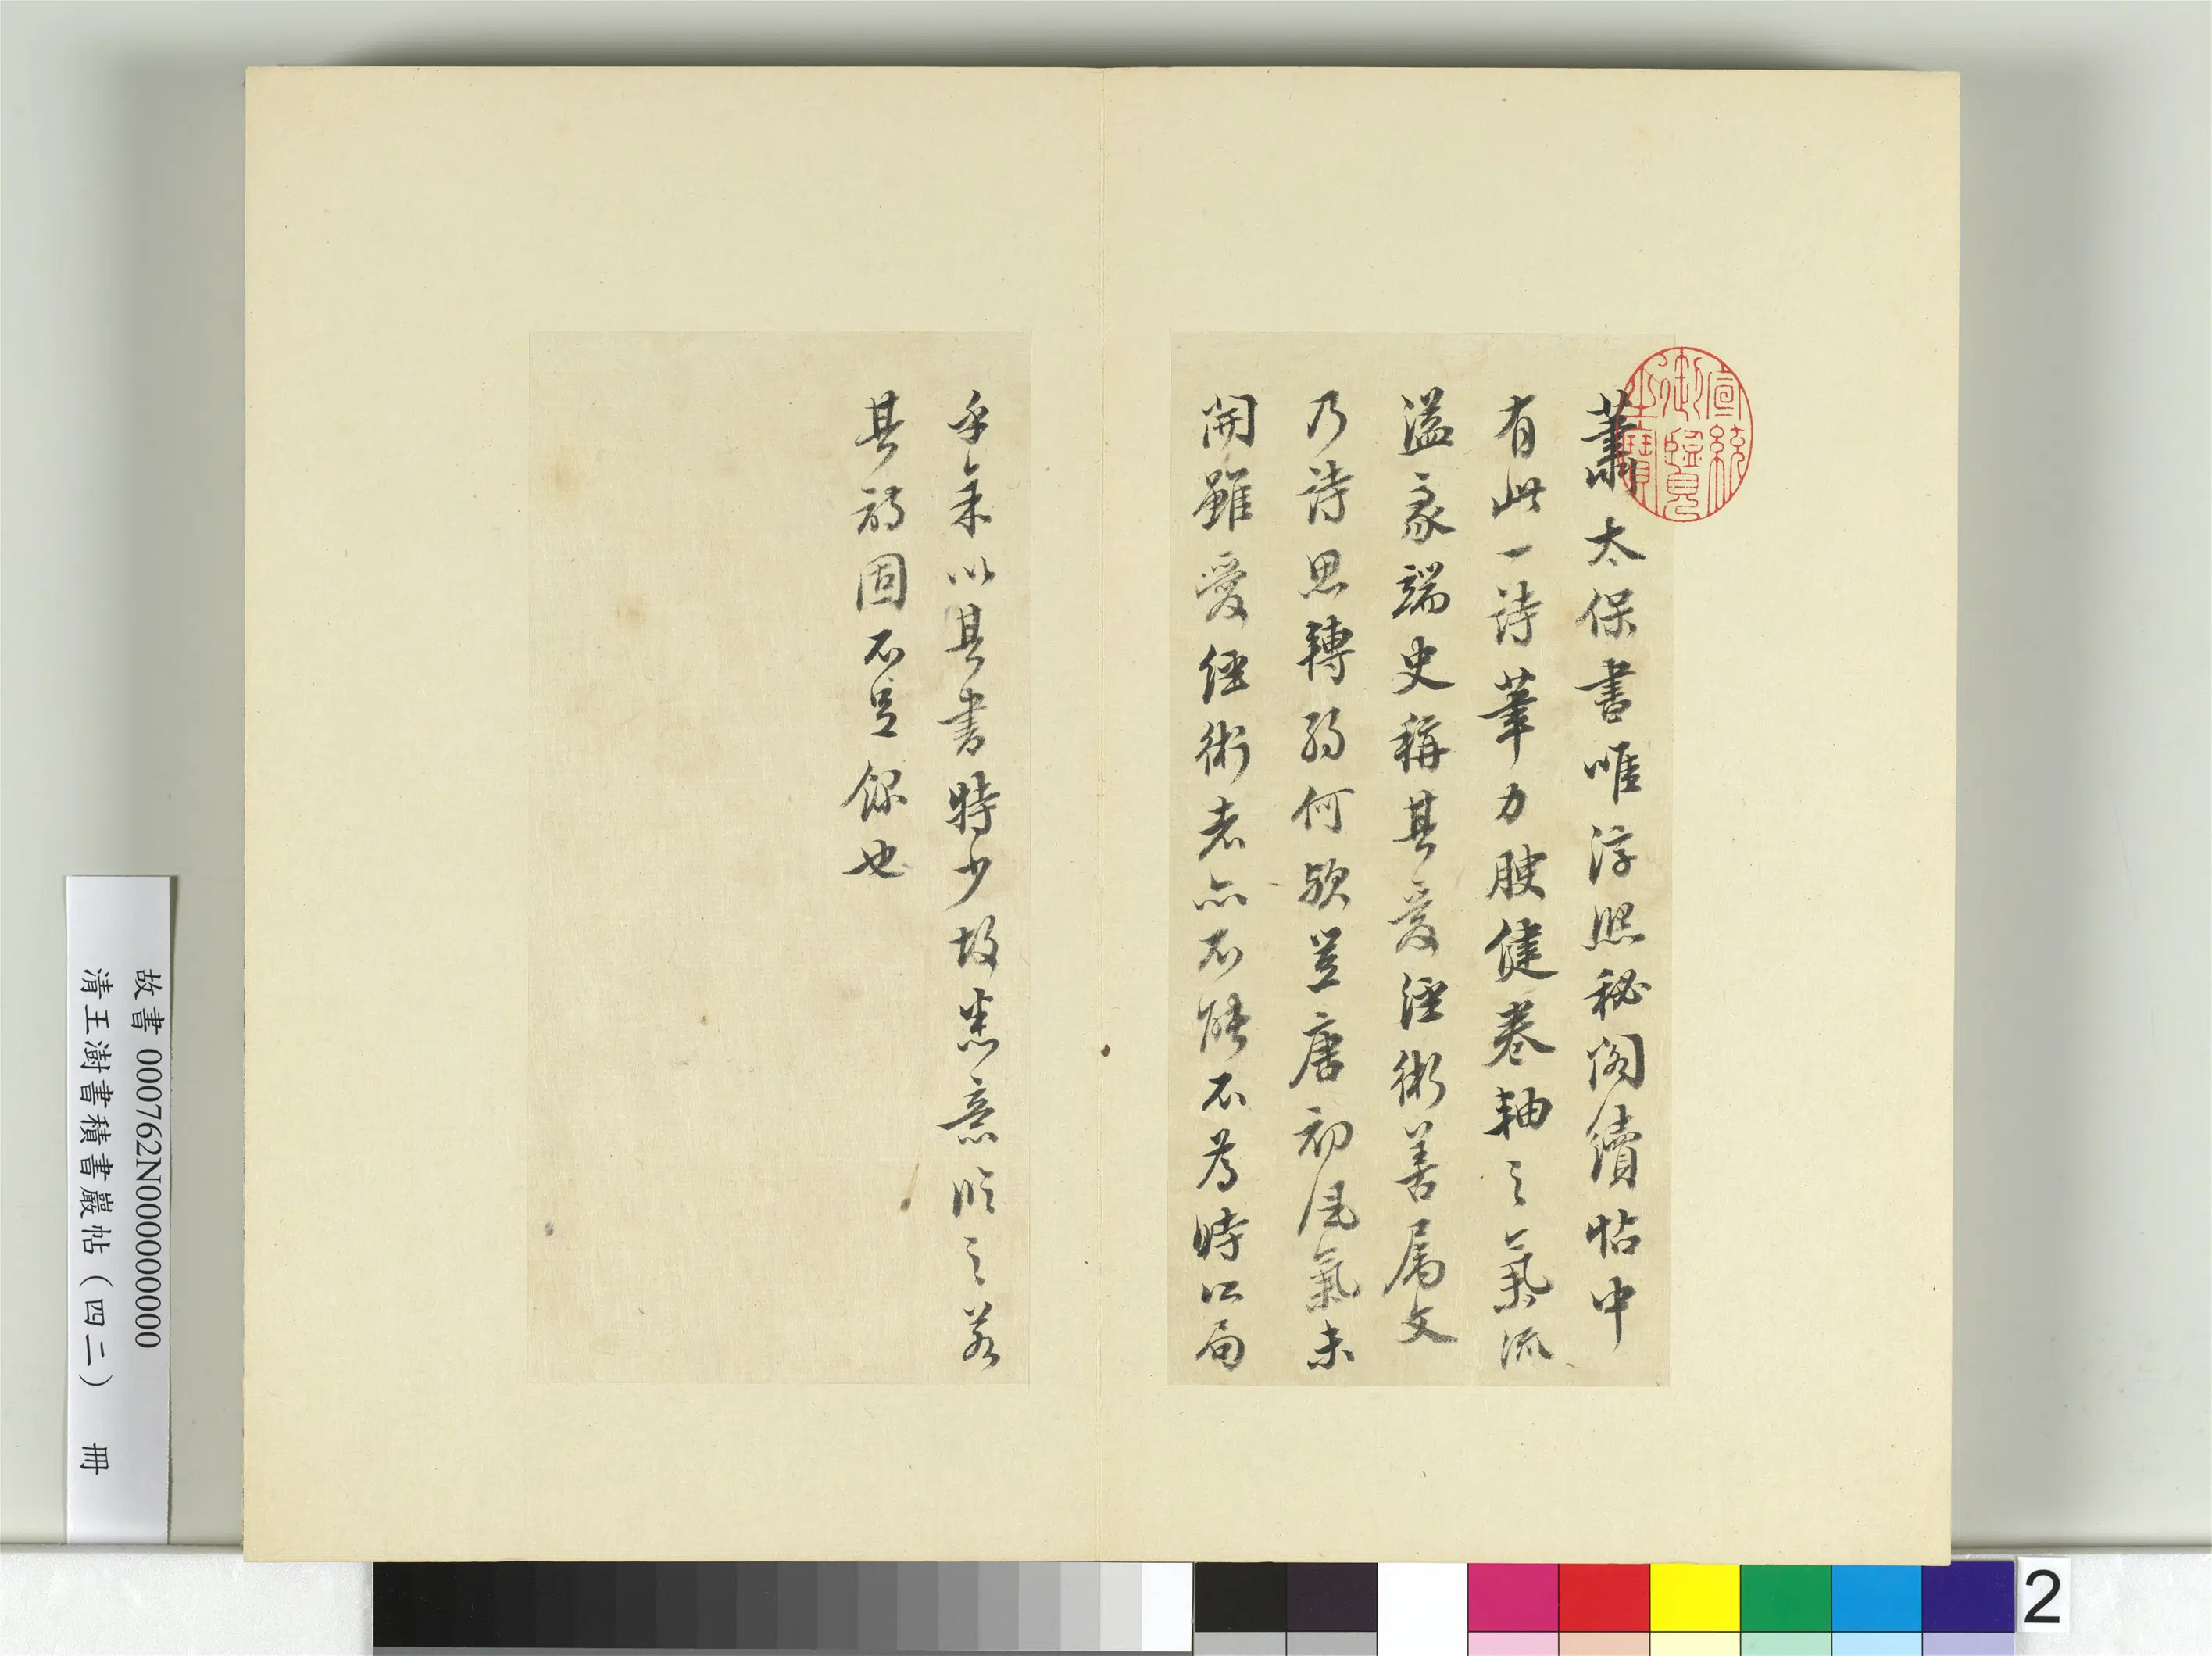 蕭太保書唯淳熙秘閣續帖中
有此一詩筆力腴健卷軸之氣流
溢豪端史稱其愛經術善属文
乃詩思轉弱何欤豈唐初風氣未
開雖愛經術者亦不能不為時所局
乎余以其書特少故悉意臨之若
其詩固不足錄也
宣統御覽之寶
故書 000762N000000000
清王澍書積書巖帖（四二） 冊
2